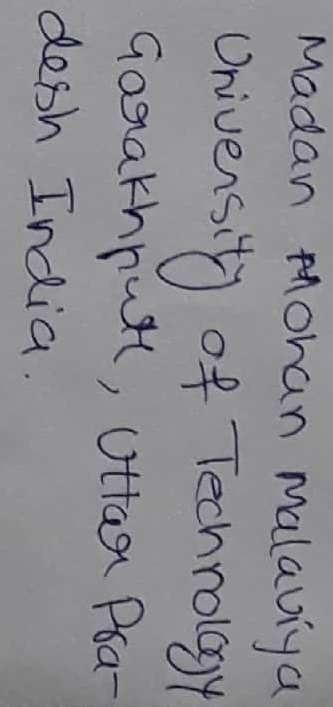 Madan Mohan Malaviya
University of Technology
Gorakhpur, Uttar Pra-
desh India.